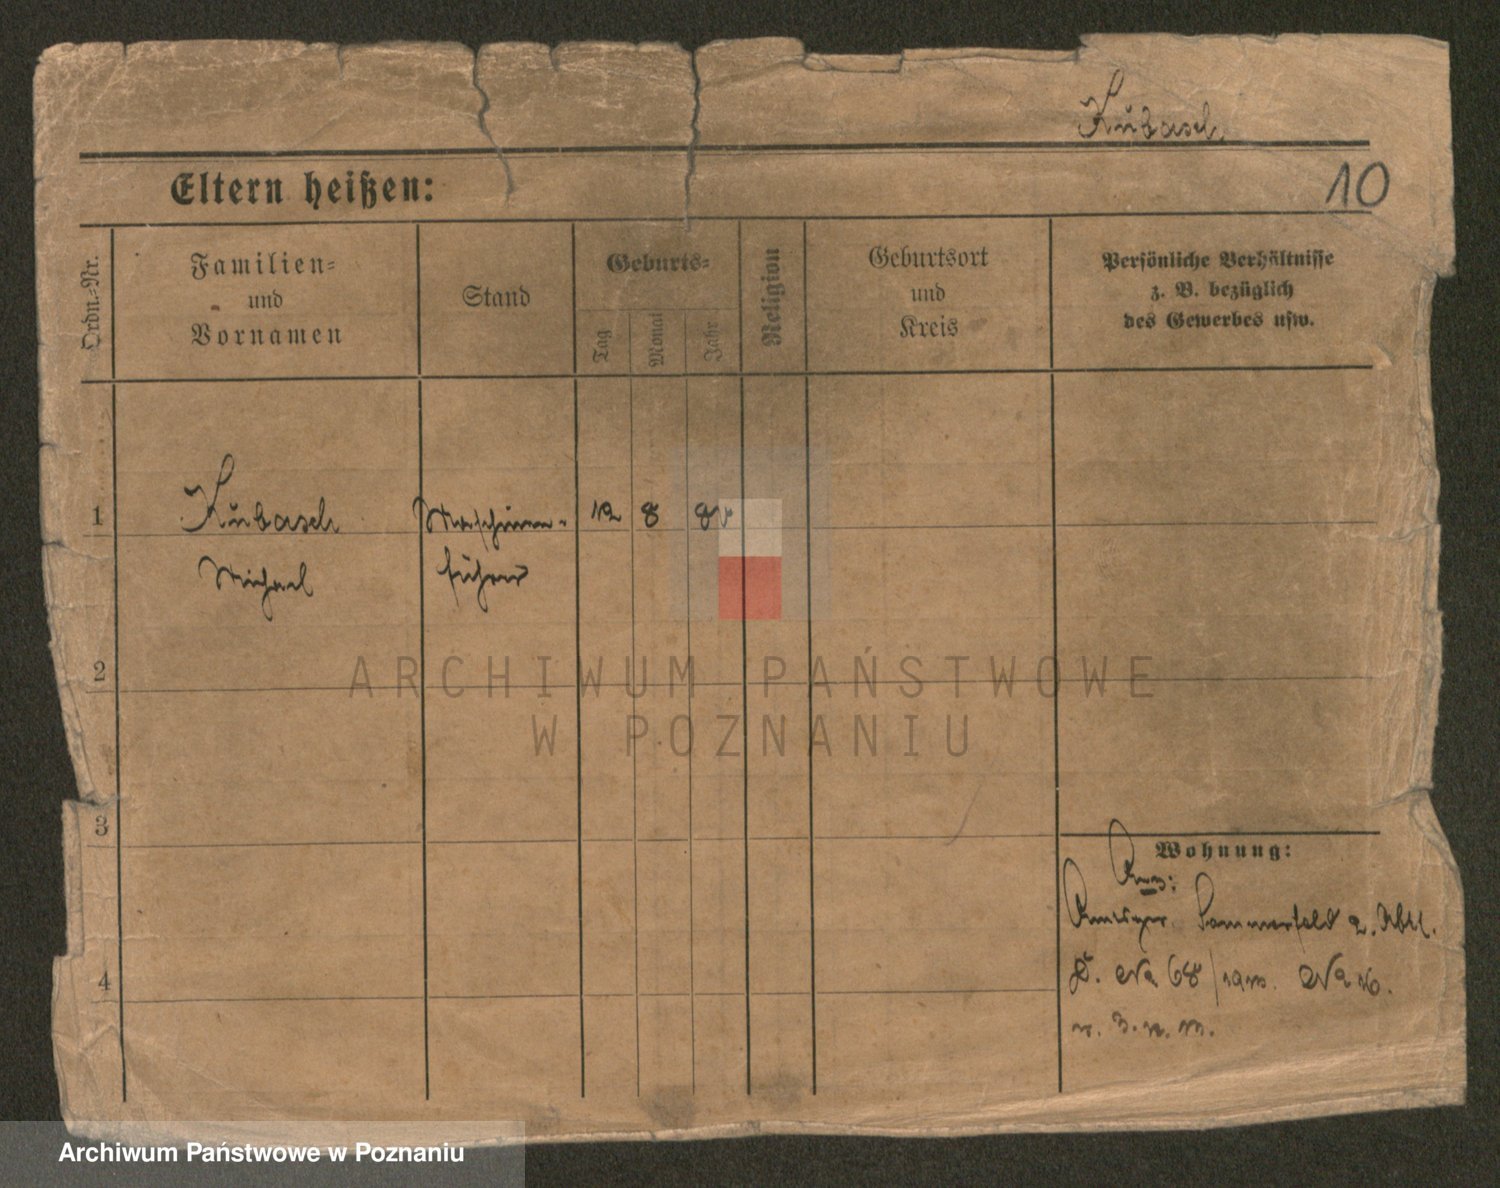 Kubasch
10
Eltern heißen:
Ordn.-Nr.
Familien-
und
Vornamen
Stand
Geburts-
Tag
Monat
Jahr
Religion
Geburtsort
und
Kreis
Persönliche Verhältnisse
z. B. bezüglich
des Gewerbes usw.
1
Kubasch
Michael
Maschinen-
führer
12
8
2
3
4
Wohnung:
Sommerfeld 2.
68
ARCHIWUM PAŃSTWOWE
W POZNANIU
Archiwum Państwowe w Poznaniu